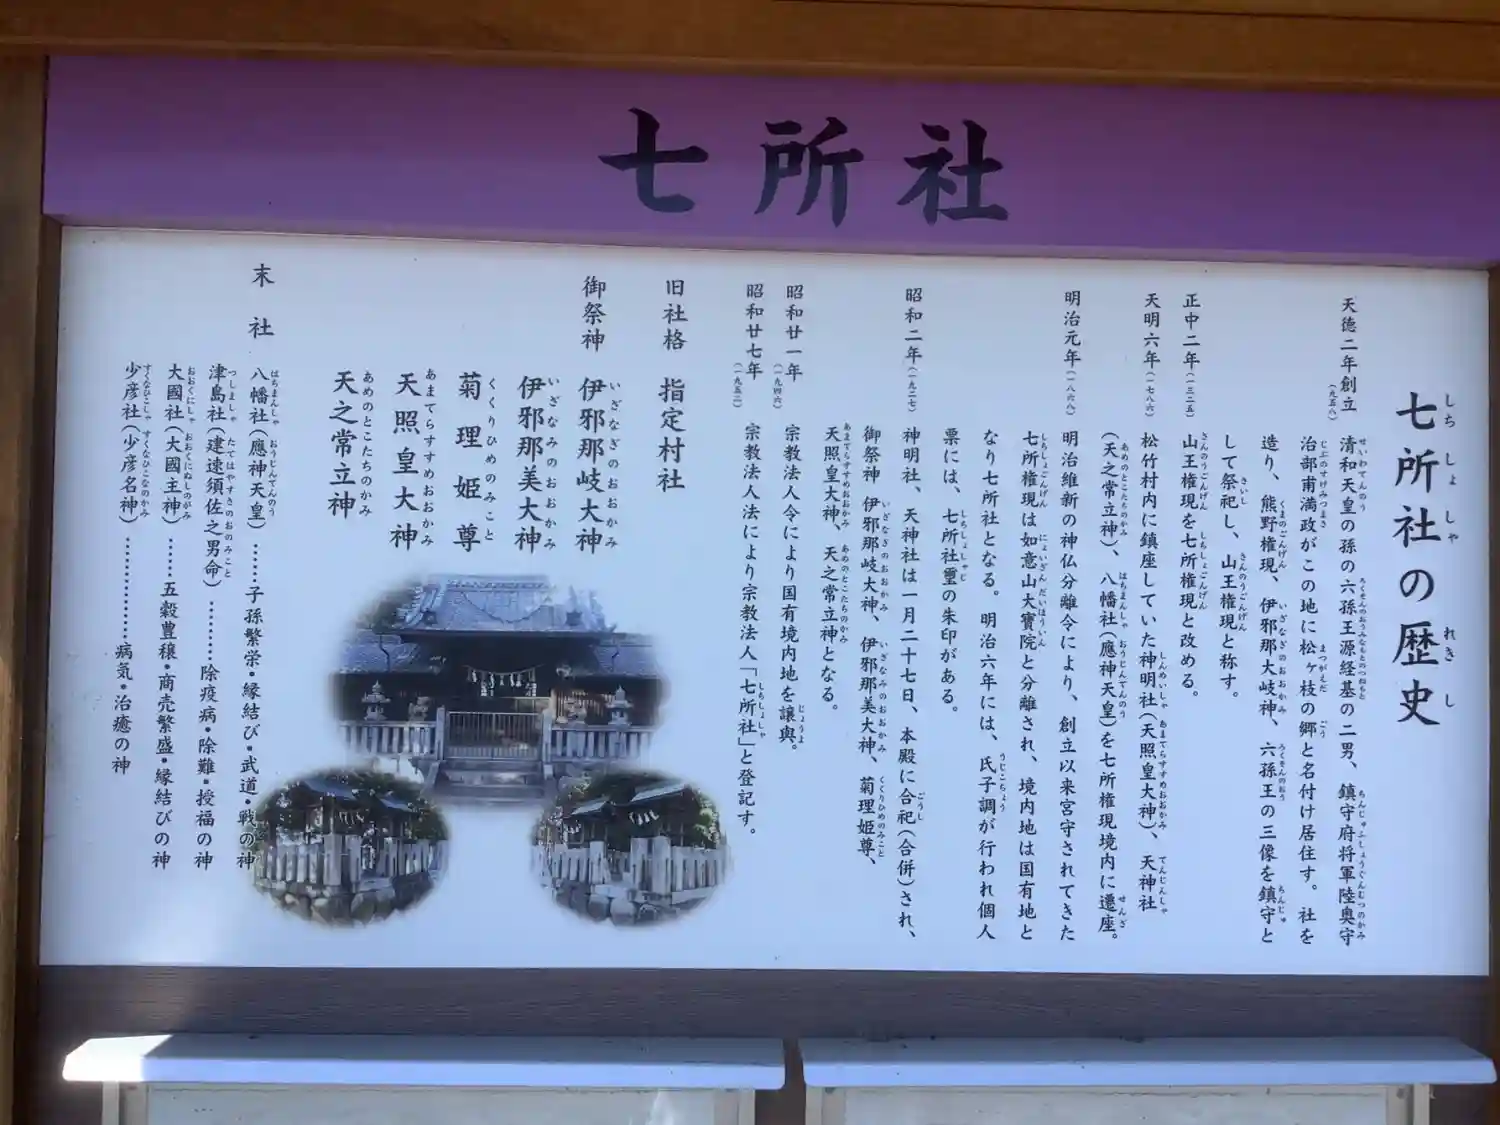 七所社
七所社の歴史
天徳二年創立(九五八) 清和天皇の孫の六孫王源経基の二男、鎮守府将軍陸奥守
治部甫満政がこの地に松ヶ枝の郷と名付け居住す。社を
造り、熊野権現、伊邪那大岐神、六孫王の三像を鎮守と
して祭祀し、山王権現と称す。
正中二年(一三二五) 山王権現を七所権現と改める。
天明六年(一七八六) 松竹村内に鎮座していた神明社(天照皇大神)、天神社
(天之常立神)、八幡社(應神天皇)を七所権現境内に遷座。
明治元年(一八六八) 明治維新の神仏分離令により、創立以来宮守されてきた
七所権現は如意山大寶院と分離され、境内地は国有地と
なり七所社となる。明治六年には、氏子調が行われ個人
票には、七所社璽の朱印がある。
昭和二年(一九二七) 神明社、天神社は一月二十七日、本殿に合祀(合併)され、
御祭神 伊邪那岐大神、伊邪那美大神、菊理姫尊、
天照皇大神、天之常立神となる。
昭和廿一年(一九四六) 宗教法人令により国有境内地を譲與。
昭和廿七年(一九五二) 宗教法人法により宗教法人「七所社」と登記す。
旧社格 指定村社
御祭神 伊邪那岐大神
伊邪那美大神
菊理姫尊
天照皇大神
天之常立神
末社 八幡社(應神天皇)……子孫繁栄・縁結び・武道・戦の神
津島社(建速須佐之男命)………除疫病・除難・授福の神
大國社(大國主神)……五穀豊穣・商売繁盛・縁結びの神
少彦社(少彦名神)……………病気・治癒の神